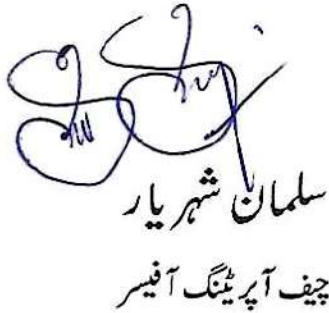 سلمان شہریار
چیف آپریٹنگ آفیسر